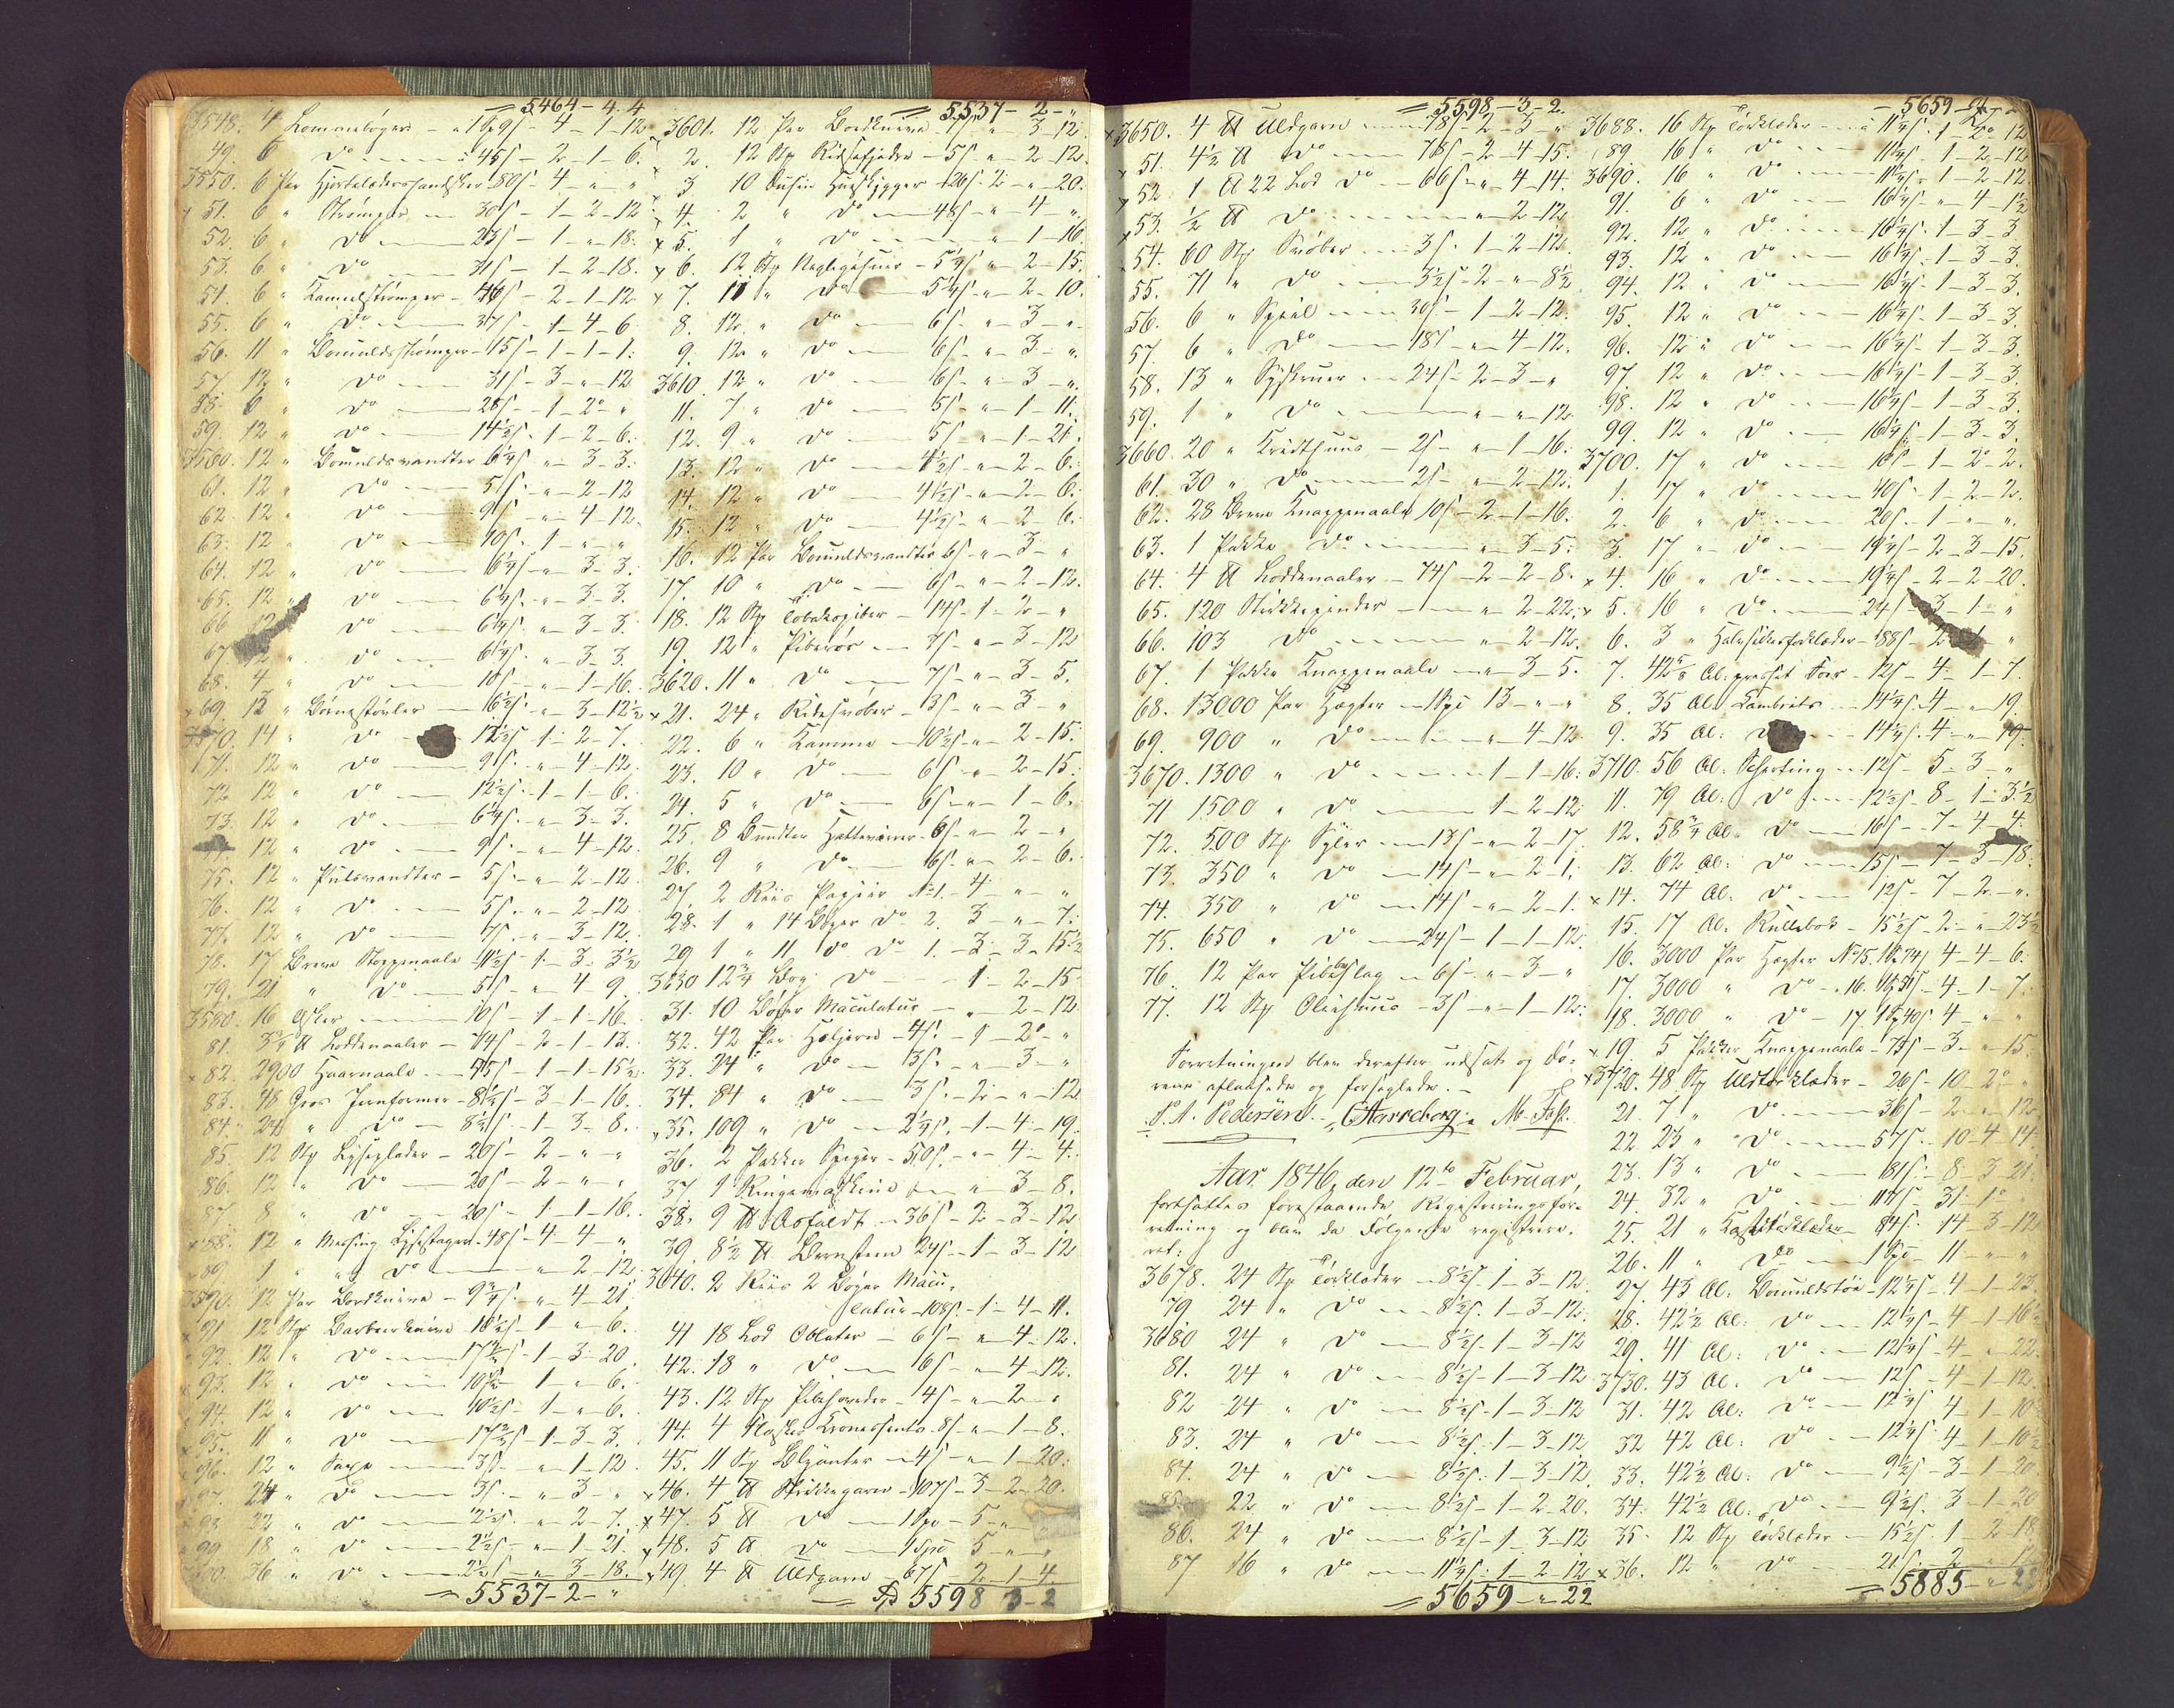 = 5464-4.4
3548. 4 Lommebøger - 1 Sp 9 s - 4-1-12
49. 6 do - 45 s - 2-1-6.
3550. 6 Par Hjortelædershandsker 80 s - 4 - " - "
51. 6 " Strømper - 30 s - 1-2-12
52. 6 " do - 23 s - 1 - " - 18.
53. 6 " do - 31 s - 1-2-18.
54. 6 " Kamelstrømper - 46 s - 2-1-12
55. 6 " do - 37 s - 1-4-6
56. 11 " Bomuldsstrømper - 15 s - 1-1-1.
57. 12 " do - 31 s - 3 - " - 12
58. 6 " do - 28 s - 1-2 - "
59. 12 " do - 14½ s - 1-2-6.
3560. 12 " Bomuldsvandter 6¼ s - " - 3-3.
61. 12 " do - 5 s - " - 2-12
62. 12 " do - 9 s - " - 4-12.
63. 12 " do - 10 s - 1 - " - "
64. 12 " do - 6¼ s - " - 3-3.
65. 12 " do - 6¼ s - " - 3-3.
66. 12 " do - 6¼ s - " - 3-3.
67. 12 " do - 6¼ s - " - 3-3.
68. 4 " do - 10 s - " - 1-16.
69. 12 " Børnestøvler - 16½ s - " - 3-12½
70. 14 " do - 12½ s 1-2-7.
71. 12 " do - 9 s - " - 4-12.
72. 12 " do - 12½ s - 1-1-6.
73. 12 " do - 6¼ s - " - 3-3.
12 " do - 9 s - " - 4-12.
75. 12 " Pulsvandter - 5 s - " - 2-12.
76. 12 " do - 5 s - " - 2-12
77. 12 " do - 7 s - " - 3-12.
78. 17 Breve Stoppenaale 11½ s - 1-3-3½
79. 21 " do - 5 s - " - 4-9
3580. 16 Æsker - 10 s - 1-1-16.
81. 3¾ ℔ Loddenaaler - 74 s - 2-1-13.
82. 2900 Haarnaale - 45 s - 1-1-15½.
83. 48 Gros Jernformer - 8½ s - 3-1-16.
84. 24 " do - 8½ s - 1-3-8.
85. 12 Stp Lyseplader - 20 s - 2 - " - "
86. 12 " do - 20 s - 2 - " - "
87. 8 " do - 20 s - 1-1-16.
88. 12 " Messing Lysestager - 48 s - 4-4 - "
89. 1 " " do - " - 2-12
3590. 12 Par Bordknive - 9¾ s - " - 4-21
91. 12 Stp Barbeerknive 10½ s - 1 - " - 6.
92. 12 " do - 17⅔ s - 1-3-20
93. 12 " do - 10½ s - 1 - " - 6.
94. 12 " do - 10½ s - 1 - " - 6.
95. 11 " do - 17⅔ s - 1-3-3.
96. 12 " Saxe - 3 s - " - 1-12
97. 24 " do - 3 s - " - 3 - "
98. 22 " do - 2½ s - " - 2-7.
99. 18 " do - 2½ s - " - 1-21.
3600. 36 " do - 2½ s - " - 3-18.
= 5537-2 - "
= 5537-2- "
3601. 12 Par Bordknive - 7 s - " - 3-12.
2. 12 Stp Ridsefjedre - 5 s - " - 2-12.
3. 10 Dusin Hueskygger - 26 s - 2 - " - 20.
4. 2 " do - 48 s - " - 4 - ".
5. 1 " do - " - 1-16.
6. 12 Stp Negligéhuer - 5¼ s - " - 2-15.
7. 11 " do - 5¼ s - " - 2-10.
8. 12 " do - 6 s - " - 3 - "
9. 12 " do - 6 s - " - 3 - ".
3610. 12 " do - 6 s - " - 3 - ".
11. 7 " do - 5 s - " - 1-11.
12. 9 " do - 5 s - " - 1-21.
13. 12 " do - 4½ s - " - 2-6.
14. 12 " do - 4½ s - " - 2-6.
15. 12 " do - 4½ s - " - 2-6.
16. 12 Par Bomuldsvandter 6 s - " - 3 - "
17. 10 " do - 6 s - " - 2-12.
18. 12 Stp Tobakspiber - 14 s - 1-2 - "
19. 12 " Piberør - 7 s - " - 3-12
3620. 11 " do - 7 s - " - 3-5.
21. 24 " Ridesvøber - 3 s - " - 3 - "
22. 6 " Kamme - 10½ s - " - 2-15.
23. 10 " do - 6 s - " - 2-15.
24. 5 " do - 6 s - " - 1-6.
25. 8 Bundter Hattesnore - 6 s - " - 2 - "
26. 9 " do - 6 s - " - 2-6.
27. 2 Riis Papiir № 1. - 4 - " - "
28. 1 " 14 Bøger do 2. 3 - " - 7.
29. 1 " 11 do do 1. - 3-3-15½
3630 12¾ Bog do - 1-2-15
31. 10 Bøger Maculatur - " - 2-12
32. 42 Par Hæljern - 4 s. - 1-2 - "
33. 24 " do - 3 s. - " - 3 - "
34. 84 " do - 3 s. - 2 - " - 12
35. 109 " do - 2¼ s. - 1-4-19.
36. 2 Pakker Spiger - 50 s. - " - 4-4.
37. 1 Ringemaskine - " - 3-8.
38. 9 ℔ Asfaldt - 36 s - 2-3-12
39. 8½ ℔ Bernsteen 24 s - 1-3-12
3640. 2 Riis 2 Bøger Macu-
latur - 108 s. - 1-4-11.
41 18 Lod Oblater - 6 s - " - 4-12.
42. 18 " do - 6 s - " - 4-12.
43. 12 Stp Pibehoveder - 4 s - " - 2 - "
44. 4 Flasker Kronessents 8 s - " - 1-8.
45. 11 Stp Blyanter - 4 s - " - 1-20.
46. 4 ℔ Strikkegarn - 107 s - 3-2-20.
47. 5 ℔ do - 1 Spd - 5 - "
48. 5 ℔ do - 1 Spd 5 - " - "
49. 4 ℔ Uldgarn - 67 s - 2-1-4
= Spd 5598 3-2
= 5598-3-2.
3650. 4 ℔ Uldgarn - 78 s - 2-3 - "
51. 4½ ℔ do - 78 s - 2-4-15.
52. 1 ℔ 22 Lod do - 66 s - " - 4-14.
53. ½ ℔ do - " - 2-12
54. 60 Stp Svøber - 3 s. 1-2-12.
55. 71 " do - 3½ s - 2 - " - 8½
56. 6 " Speil - 30 s - 1-2-12.
57. 6 " do - 18 s - " - 4-12.
58. 13 " Syskruer - 24 s - 2-3 - "
59. 1 " do - " - " - 12
3660. 20 " Kridthuus - 2 s - " - 1-16.
61. 30 " do - 2 s - " - 2-12.
62. 28 Breve Knappenaale 10 s - 2-1-16.
63. 1 Pakke do - " - 3-5.
64. 4 ℔ Loddenaaler - 74 s - 2-2-8.
65. 120 Strikkepinder - " - 2-22.
66. 103 do - " - 2-12.
67. 1 Pakke Knappenaale - " - 3-5.
68. 13000 Par Hægter - 1 Spd 13 - " - "
69. 900 " do - " - 4-12
3670. 1300 " do - 1-1-16.
71 1500 " do - 1-2-12
72. 500 Stp Syler - 13 s - " - 2-17.
73. 350 " do - 14 s - " - 2-1.
74. 350 " do - 14 s - " - 2-1.
75. 650 " do - 24 s - 1-1-12.
76. 12 Par Pibebeslag - 6 s - " - 3 - "
77. 12 Stp Oliehuus - 3 s - " - 1-12.
Forretningen blev derefter udsat og Dø-
rene aflaasede og forseglede. -
P. A. Pedersen. CHarreborg. M. Foss.
Aar 1846, den 12te Februar,
fortsattes forestaaende Registreringsfor-
retning og blev da Følgende registre-
ret:
3678. 24 Stp Tørklæder - 8½ s - 1-3-12.
79 24 " do - 8½ s. 1-3-12.
3680 24 " do - 8½ s - 1-3-12
81. 24 " do - 8½ s - 1-3-12
82 24 " do - 8½ s - 1-3-12
83. 24 " do - 8½ s. 1-3-12
84. 24 " do - 8½ s. 1-3-12.
85. 22 " do - 8½ s - 1-2-20.
86. 24 " do - 8½ s - 1-3-12
87 16 " do - 11¼ s. 1-2-12
= 5659 - " - 22
- 5659-"-22
3688. 16 Stp Tørklæder - 11¼ s. 1-2-12
89. 16 " do - 11¼ s. 1-2-12
3690. 16 " do - 11¼ s. 1-2-12
91. 6 " do - 16¼ s - " - 4-1½
92. 12 " do - 16¼ s. 1-3-3.
93. 12 " do - 16¼ s - 1-3-3.
94. 12 " do - 16¼ s - 1-3-3.
95. 12 " do - 16¼ s - 1-3-3.
96. 12 " do - 16¼ s - 1-3-3.
97. 12 " do - 16¼ s - 1-3-3.
98. 12 " do - 16¼ s - 1-3-3.
99. 12 " do - 16¼ s - 1-3-3.
3700. 17 " do - 10 s - 1-2-2.
1. 17 " do - 40 s - 1-2-2.
2. 6 " do - 20 s. 1 - " - ".
3. 17 " do - 19¼ s - 2-3-15.
4. 16 " do - 19¼ s - 2-2-20.
5. 16 " do - 24 s - 3-1 - "
6. 3 " Halvsilketørklæder - 88 s - 2
7. 42⅝ Al: presset Foer - 12 s - 4-1-7.
8. 35 Al: Kambriks - 14¼ s. 4 - " - 19.
9. 35 Al: do - 14¼ s. 4 - " - 19.
3710. 56 Al: Schirting - 12 s - 5-3 - "
11. 79 Al: do - 12½ s - 8-1-3½
12. 58¾ Al: do - 16 s - 7-4-4.
13. 62 Al: do - 15 s - 7-3-18.
14. 74 Al: do - 12 s - 7-2 - ".
15. 17 Al: Rullebok - 15½ s - 2 - " - 23½
16. 3000 Par Hægter № 15. 1 Sp 74 s 4-4-6.
17. 3000 " do - 16. 1 Sp 51 s - 4-1-7.
18. 3000 " do - 17. 1 Sp 40 s 4 - " - "
19. 5 Pakker Knappenaale - 75 s - 3 - " - 15.
3720. 48 Stp Uldtørklæder - 26 s - 10-2 - "
21. 7 " do - 36 s - 2 - " - 12
22. 23 " do - 57 s. - 10-4-14.
23. 13 " do - 81 s - 8-3-21.
24. 32 " do - 117 s 31-1 - "
25. 21 " Kastetørklæder 84 s. 14-3-12
26. 11 " do - 1 Spd - 11 - " - "
27. 43 Al: Bomuldstøi - 12¼ s - 4-1-23.
28. 42½ Al: do - 12¼ s - 4-1-16½
29. 41 Al: do - 12¼ s - 4 - " - 22.
3730. 43 Al: do - 12 s - 4-1-12.
31. 42 Al: do - 12¼ s 4-1-10½
32 42 Al: do - 12¼ s 4-1-10½
33. 42½ Al: do - 9½ s - 3-1-20.
34. 42½ Al: do - 9½ s. 3-1-20
35. 12 Stp Tørklæder - 15½ s. 1-2-18
36. 12 " do - 21 s. 2 - " - 12
= 5885-"-2